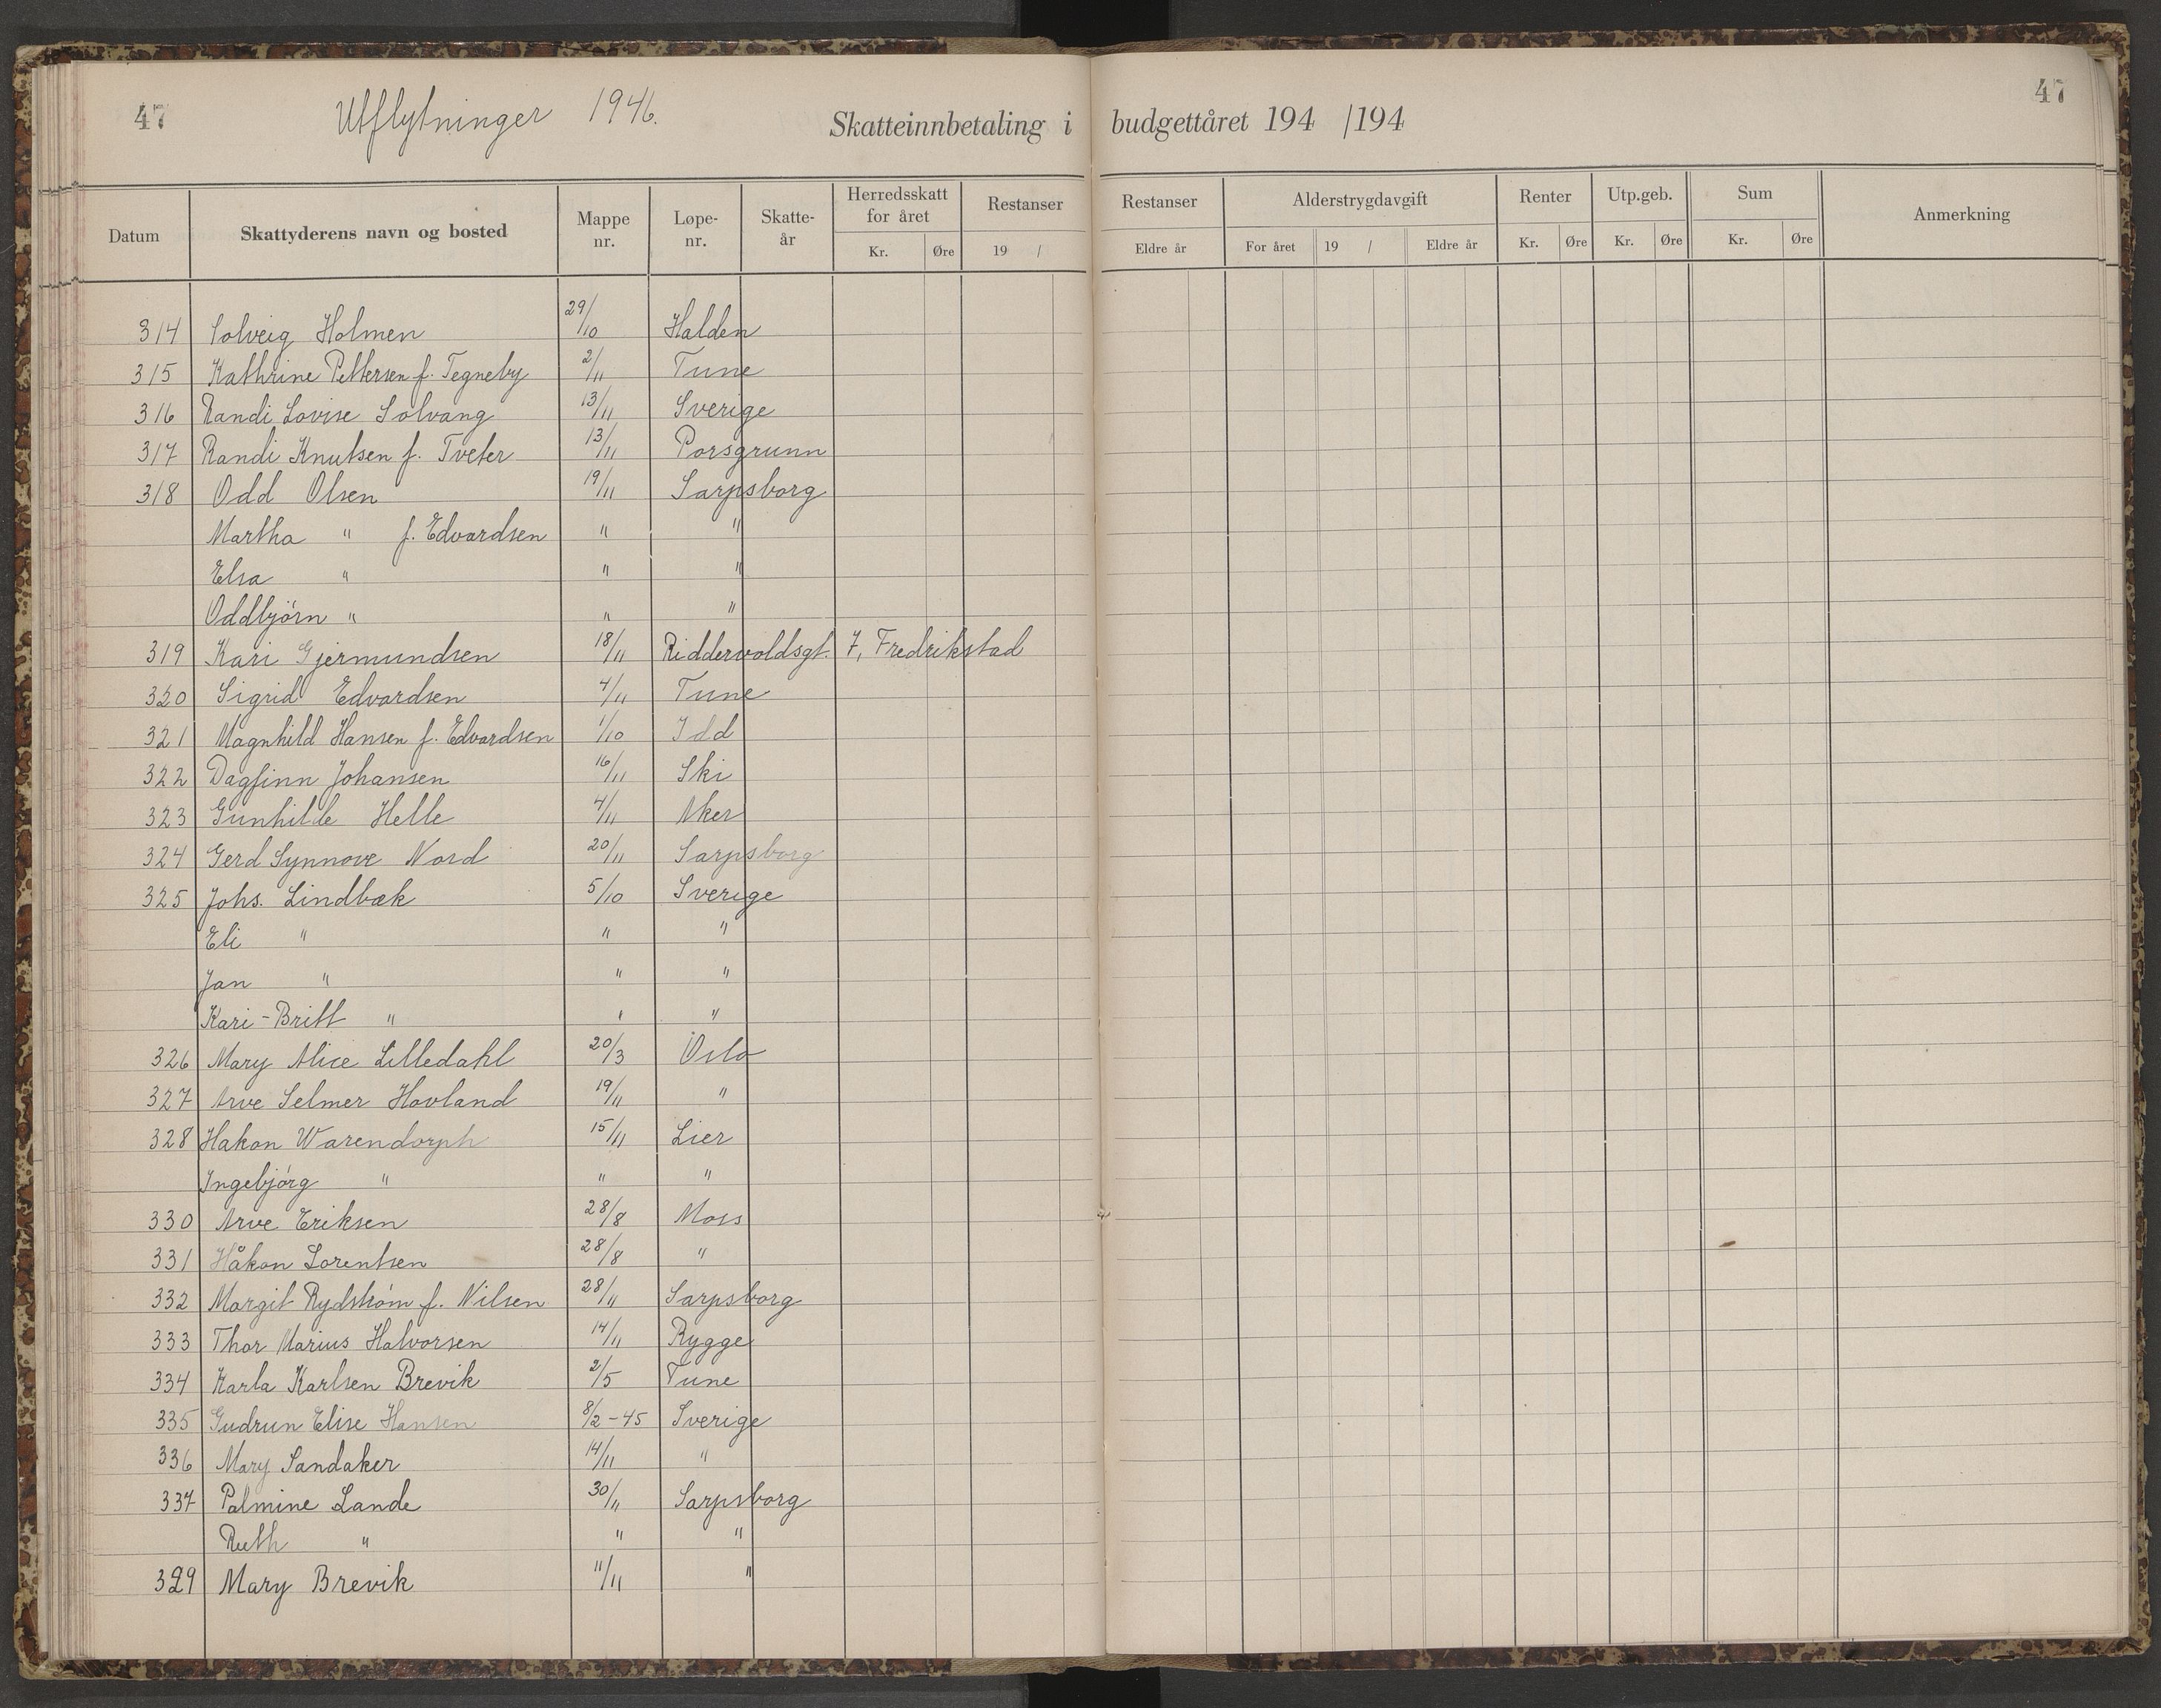 47 Utflytninger 1946. Skatteinnbetaling i budgettåret 194 /194 47
Datum Skattyderens navn og bosted Mappe nr. Løpe-nr. Skatte-år Herredsskatt for året Kr. Øre Restanser 19 / Restanser Eldre år Alderstrygdavgift For året 19 / Eldre år Renter Kr. Øre Utp.geb. Kr. Øre Sum Kr. Øre Anmerkning
314 Solveig Holmen 29/10 Halden
315 Kathrine Pettersen f. Tegneby 2/11 Tune
316 Randi Lovise Solvang 13/11 Sverige
317 Randi Knutsen f. Tveter 13/11 Porsgrunn
318 Odd Olsen 19/11 Sarpsborg
Martha " f. Edvardsen " "
Elsa " " "
Oddbjörn " " "
319 Kari Gjermundsen 18/11 Riddervoldsgt. 7, Fredrikstad
320 Sigrid Edvardsen 4/11 Tune
321 Magnhild Hansen f. Edvardsen 1/10 Idd
322 Dagfinn Johansen 16/11 Ski
323 Gunhilde Helle 4/11 Aker
324 Gerd Synnove Nord 20/11 Sarpsborg
325 Johs. Lindbæk 5/10 Sverige
Eli " " "
Jan " " "
Kari-Britt " " "
326 Mary Alice Lilledahl 20/3 Oslo
327 Arve Selmer Hovland 19/11 "
328 Hakon Warendorph 15/11 Lier
Ingebjörg " " "
330 Arve Eriksen 28/8 Moss
331 Håkon Lorentsen 28/8 "
332 Margit Rydström f. Nilsen 28/11 Sarpsborg
333 Thor Marius Halvorsen 14/11 Rygge
334 Karla Karlsen Brevik 2/5 Tune
335 Gudrun Elise Hansen 8/2-45 Sverige
336 Mary Sandaker 14/11 "
337 Palmine Lande 30/11 Sarpsborg
Ruth " " "
329 Mary Brevik 11/11 "